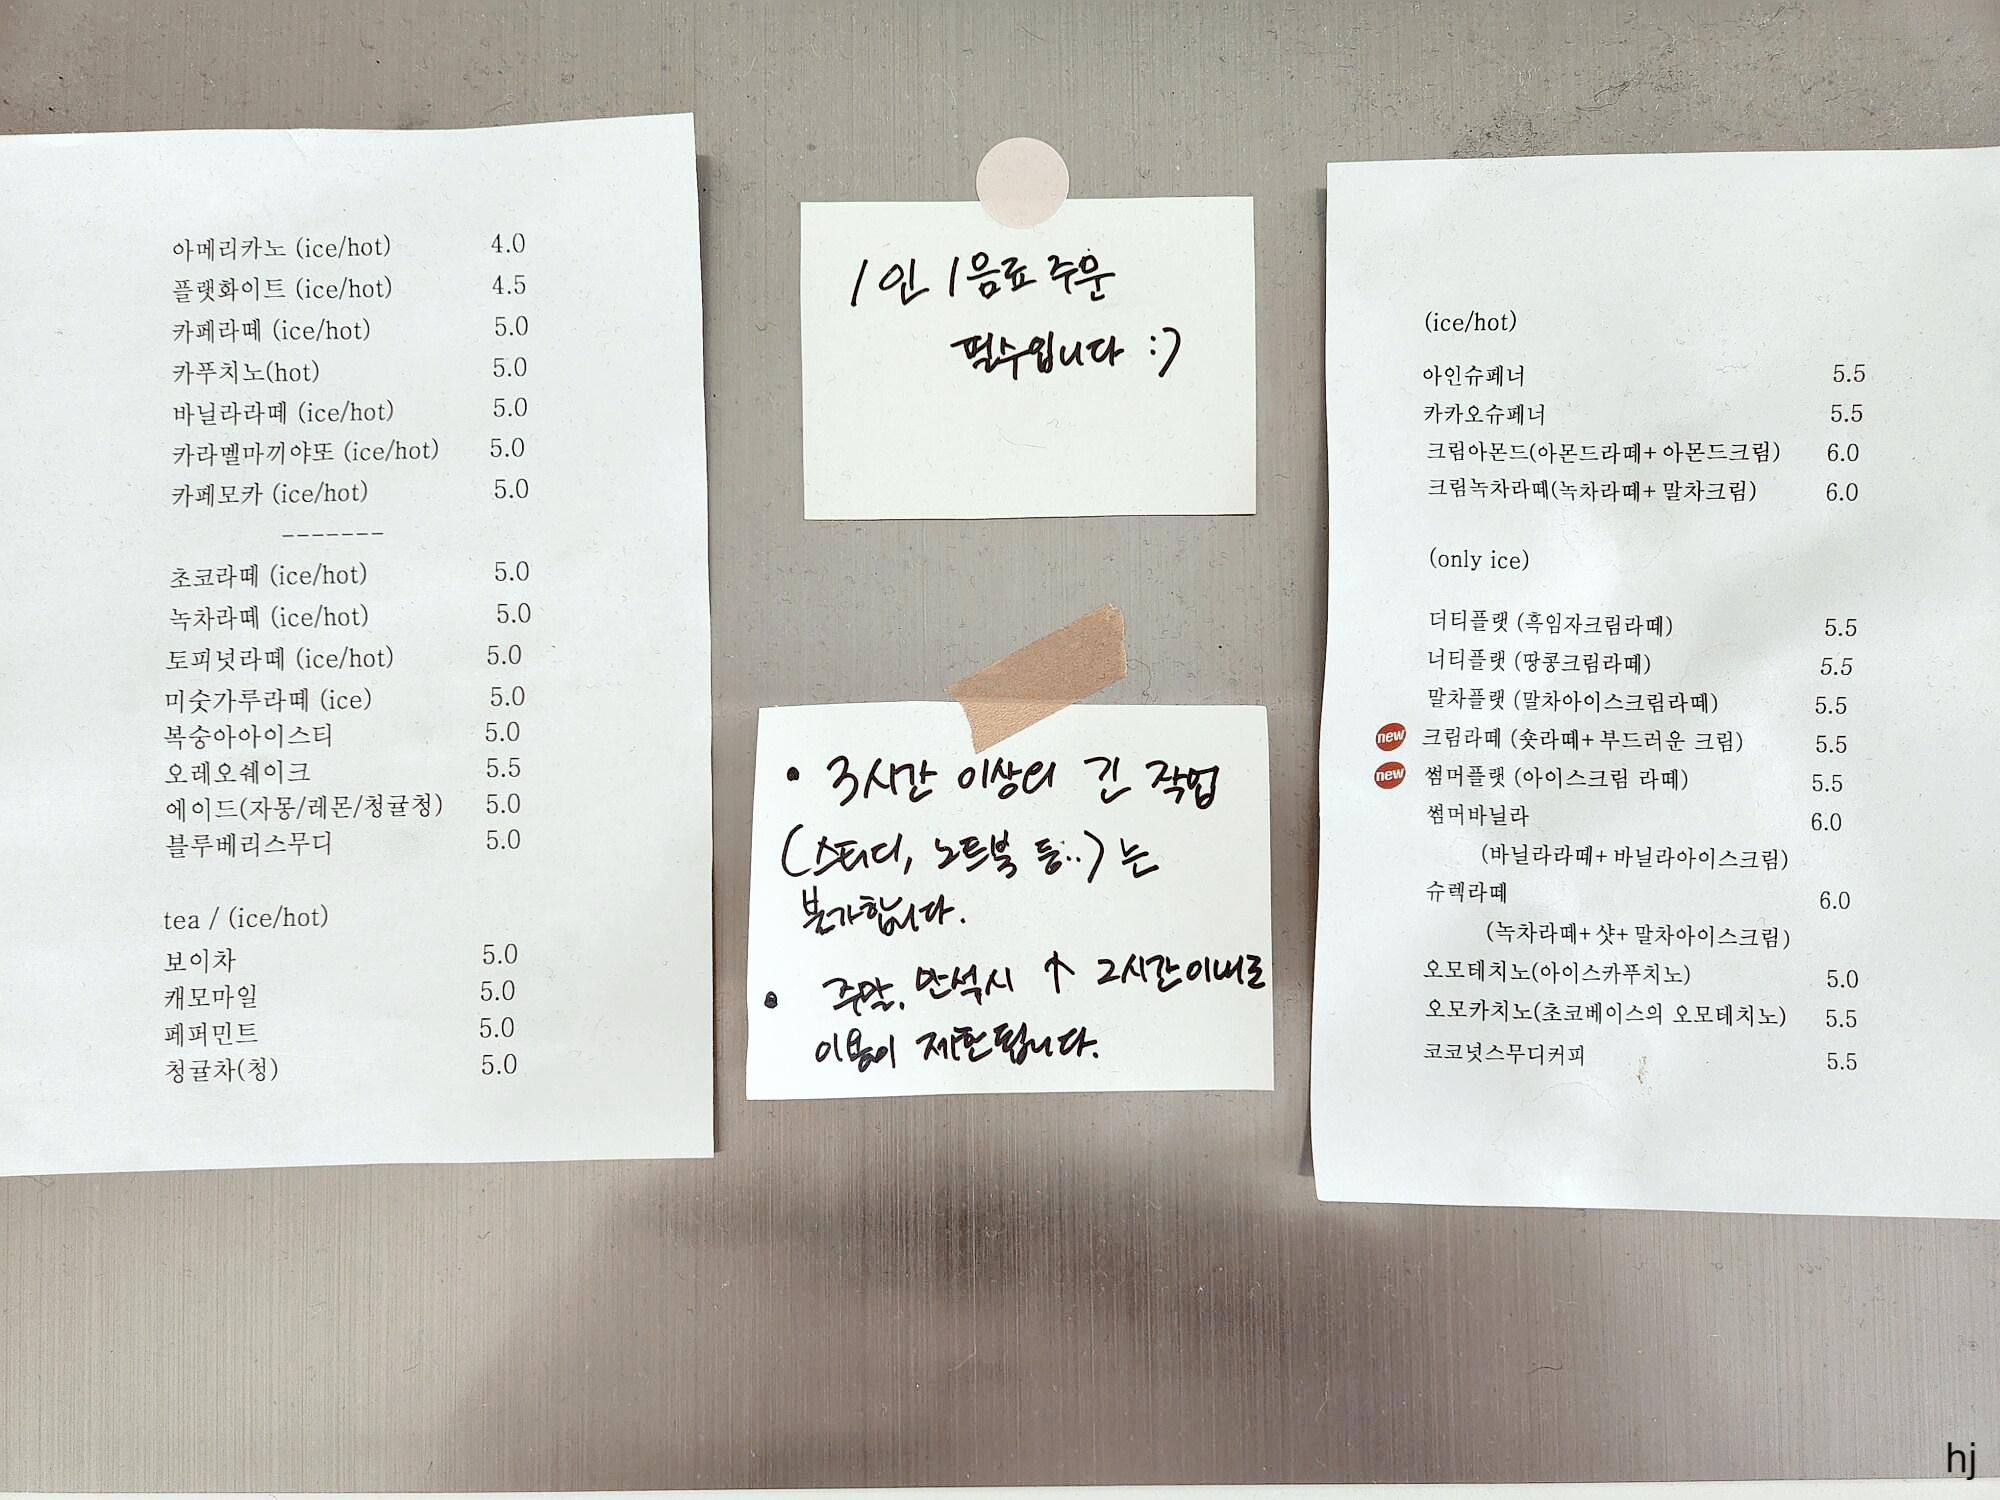 아메리카노 (ice/hot) 4.0
플랫화이트 (ice/hot) 4.5
카페라떼 (ice/hot) 5.0
카푸치노(hot) 5.0
바닐라라떼 (ice/hot) 5.0
카라멜마끼야또 (ice/hot) 5.0
카페모카 (ice/hot) 5.0
-------
초코라떼 (ice/hot) 5.0
녹차라떼 (ice/hot) 5.0
토피넛라떼 (ice/hot) 5.0
미숫가루라떼 (ice) 5.0
복숭아아이스티 5.0
오레오쉐이크 5.5
에이드(자몽/레몬/청귤청) 5.0
블루베리스무디 5.0
tea / (ice/hot)
보이차 5.0
캐모마일 5.0
페퍼민트 5.0
청귤차(청) 5.0
1인 1음료 주문
필수입니다 :)
• 3시간 이상의 긴 작업
(스터디, 노트북 등..)는
불가합니다.
• 주말, 만석시 ↑ 2시간이내로
이용이 제한됩니다.
(ice/hot)
아인슈페너 5.5
카카오슈페너 5.5
크림아몬드(아몬드라떼+ 아몬드크림) 6.0
크림녹차라떼(녹차라떼+ 말차크림) 6.0
(only ice)
더티플랫 (흑임자크림라떼) 5.5
너티플랫 (땅콩크림라떼) 5.5
말차플랫 (말차아이스크림라떼) 5.5
new 크림라떼 (숏라떼+ 부드러운 크림) 5.5
new 썸머플랫 (아이스크림 라떼) 5.5
썸머바닐라 6.0
(바닐라라떼+ 바닐라아이스크림)
슈렉라떼 6.0
(녹차라떼+ 샷+ 말차아이스크림)
오모테치노(아이스카푸치노) 5.0
오모카치노(초코베이스의 오모테치노) 5.5
코코넛스무디커피 5.5
hj